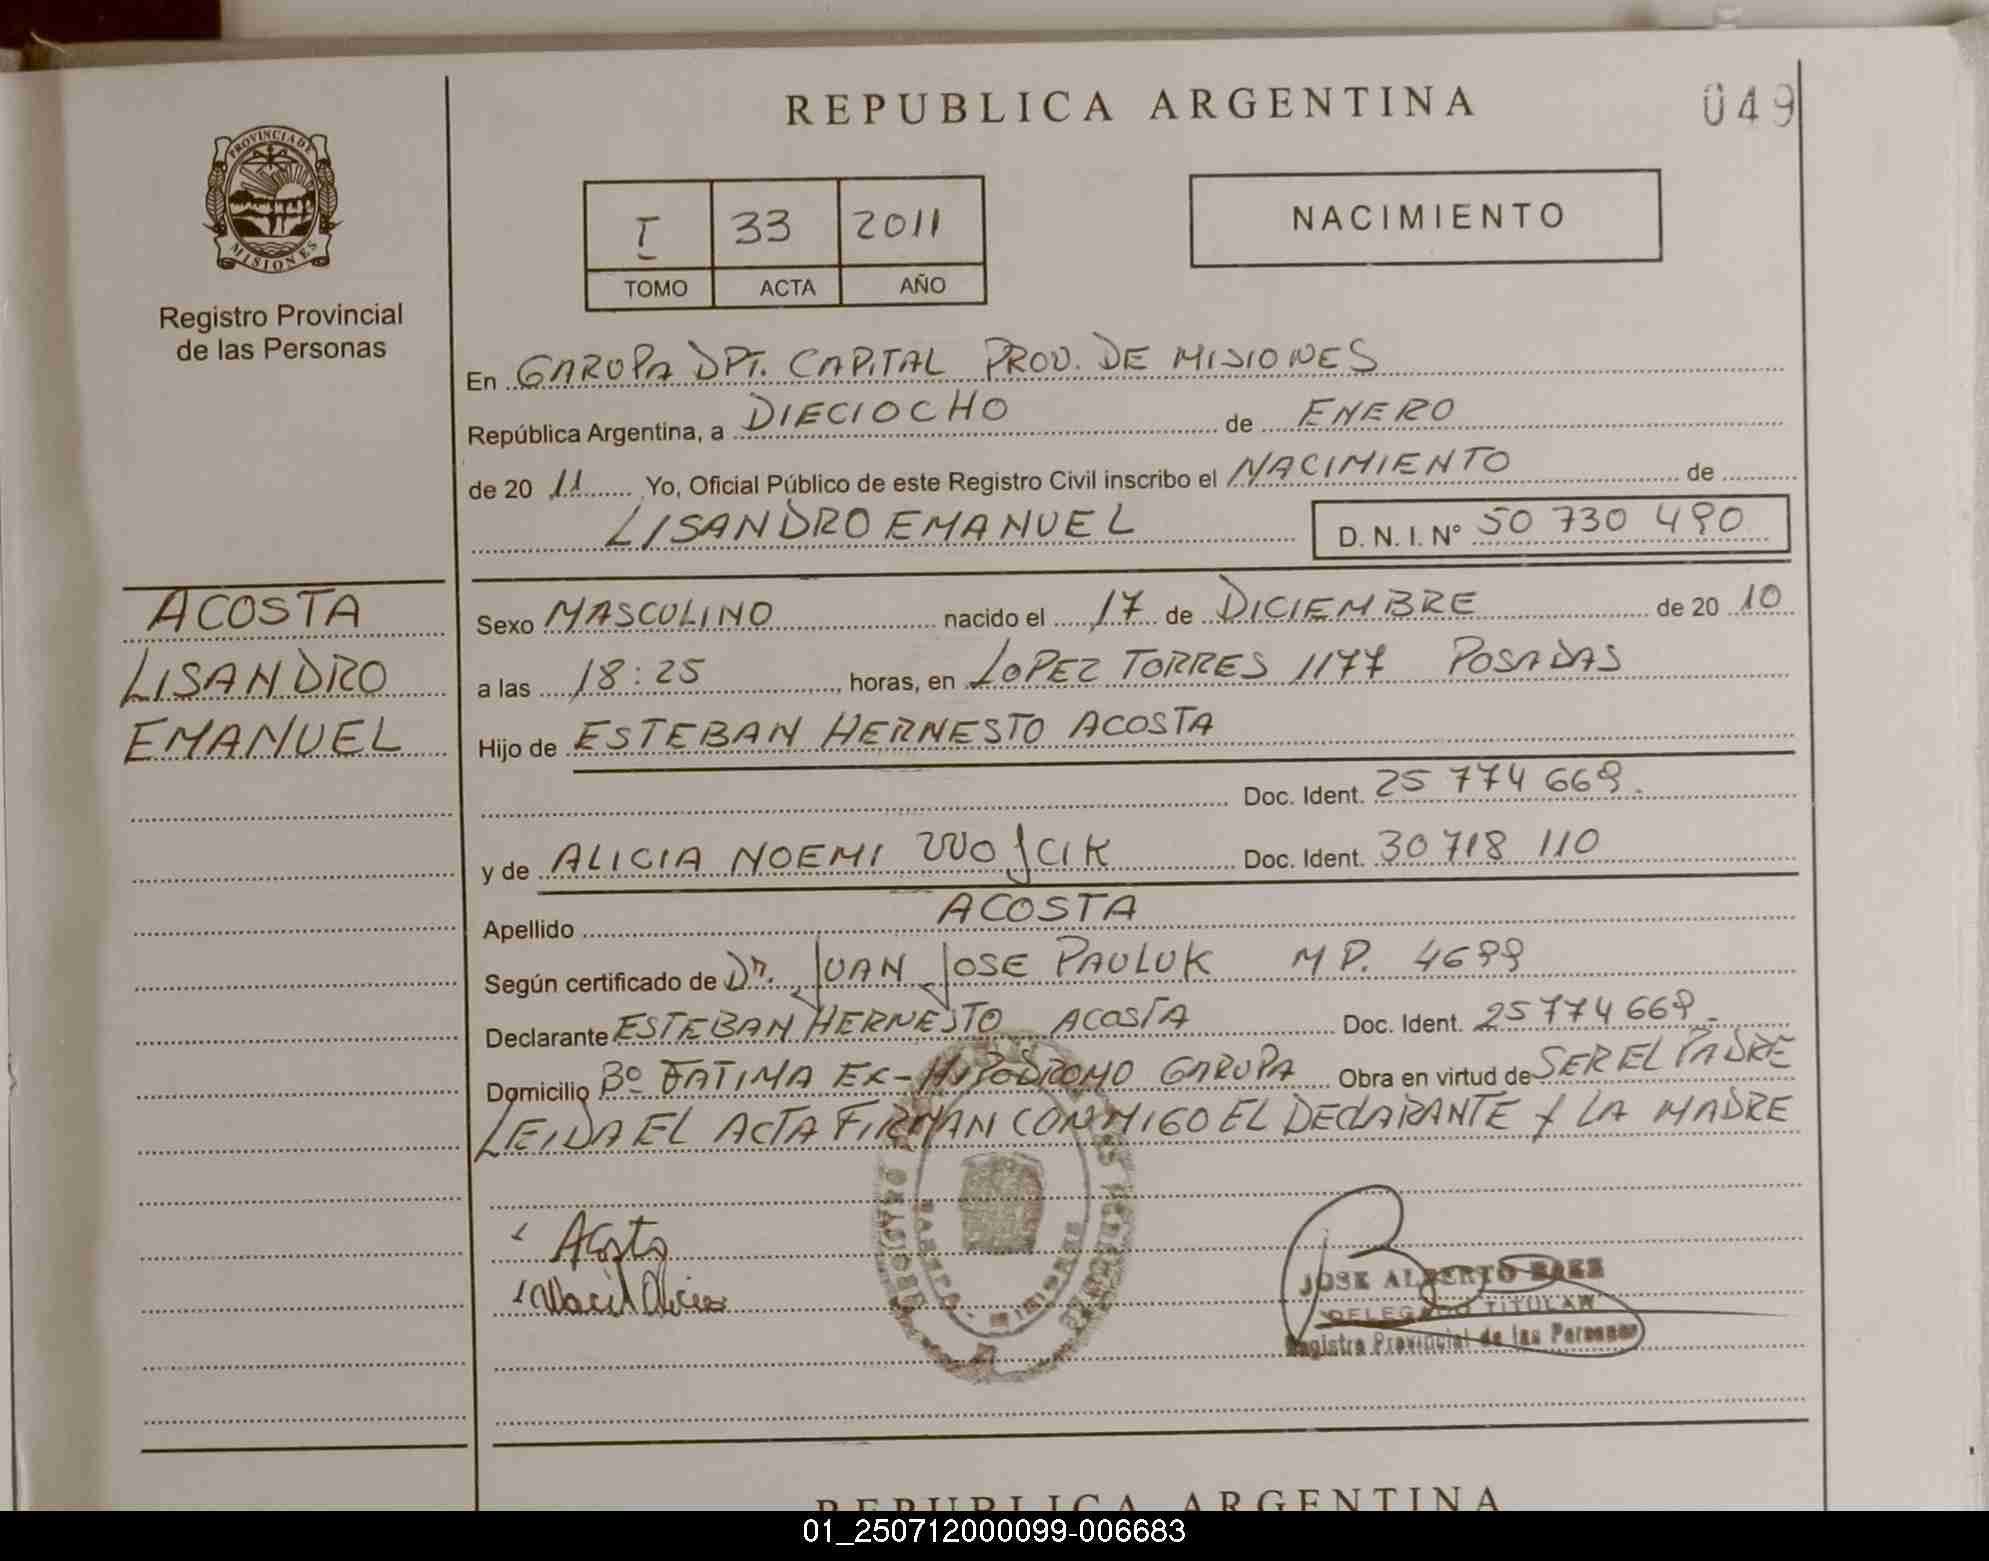 REPUBLICA ARGENTINA
049
PROVINCIA DE
MISIONES
Registro Provincial
de las Personas
I 33 2011
TOMO ACTA AÑO
NACIMIENTO
En GARUPA DPT. CAPITAL PROV. DE MISIONES
República Argentina, a DIECIOCHO de ENERO
de 20 11 Yo, Oficial Público de este Registro Civil inscribo el NACIMIENTO de
LISANDRO EMANUEL D. N. I. Nº 50 730 490
ACOSTA
LISANDRO
EMANUEL
Sexo MASCULINO nacido el 17 de DICIEMBRE de 20 10
a las 18:25 horas, en LOPEZ TORRES 1177 POSADAS
Hijo de ESTEBAN HERNESTO ACOSTA
Doc. Ident. 25 774 669.
y de ALICIA NOEMI WOJCIK Doc. Ident. 30 718 110
Apellido ACOSTA
Según certificado de Dr. JUAN JOSE PAULUK M P. 4699
Declarante ESTEBAN HERNESTO ACOSTA Doc. Ident. 25 774 669.
Domicilio Bº FATIMA EX-HIPODROMO GARUPA Obra en virtud de SER EL PADRE
LEIDA EL ACTA FIRMAN CONMIGO EL DECLARANTE Y LA MADRE
Acosta
Alicia
JOSE ALBERTO BAEZ
DELEGADO TITULAR
Registro Provincial de las Personas
REPUBLICA ARGENTINA
01_250712000099-006683